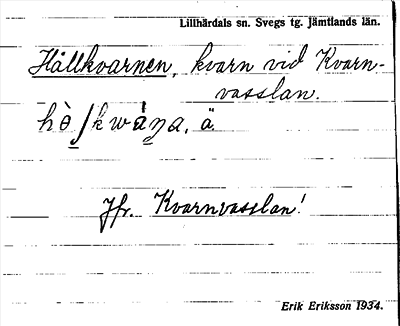 Lillhärdals sn. Svegs tg. Jämtlands län.
Hållkvarnen, kvarn vid Kvarn-
vasslan.
Jfr. Kvarnvasslan!
Erik Eriksson 1934.